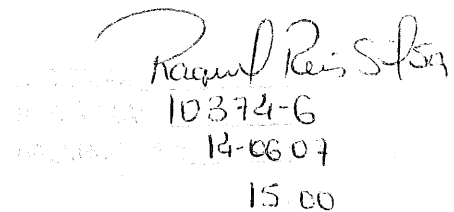 Raquel Reis Silva
10374-6
14-06 07
15 00